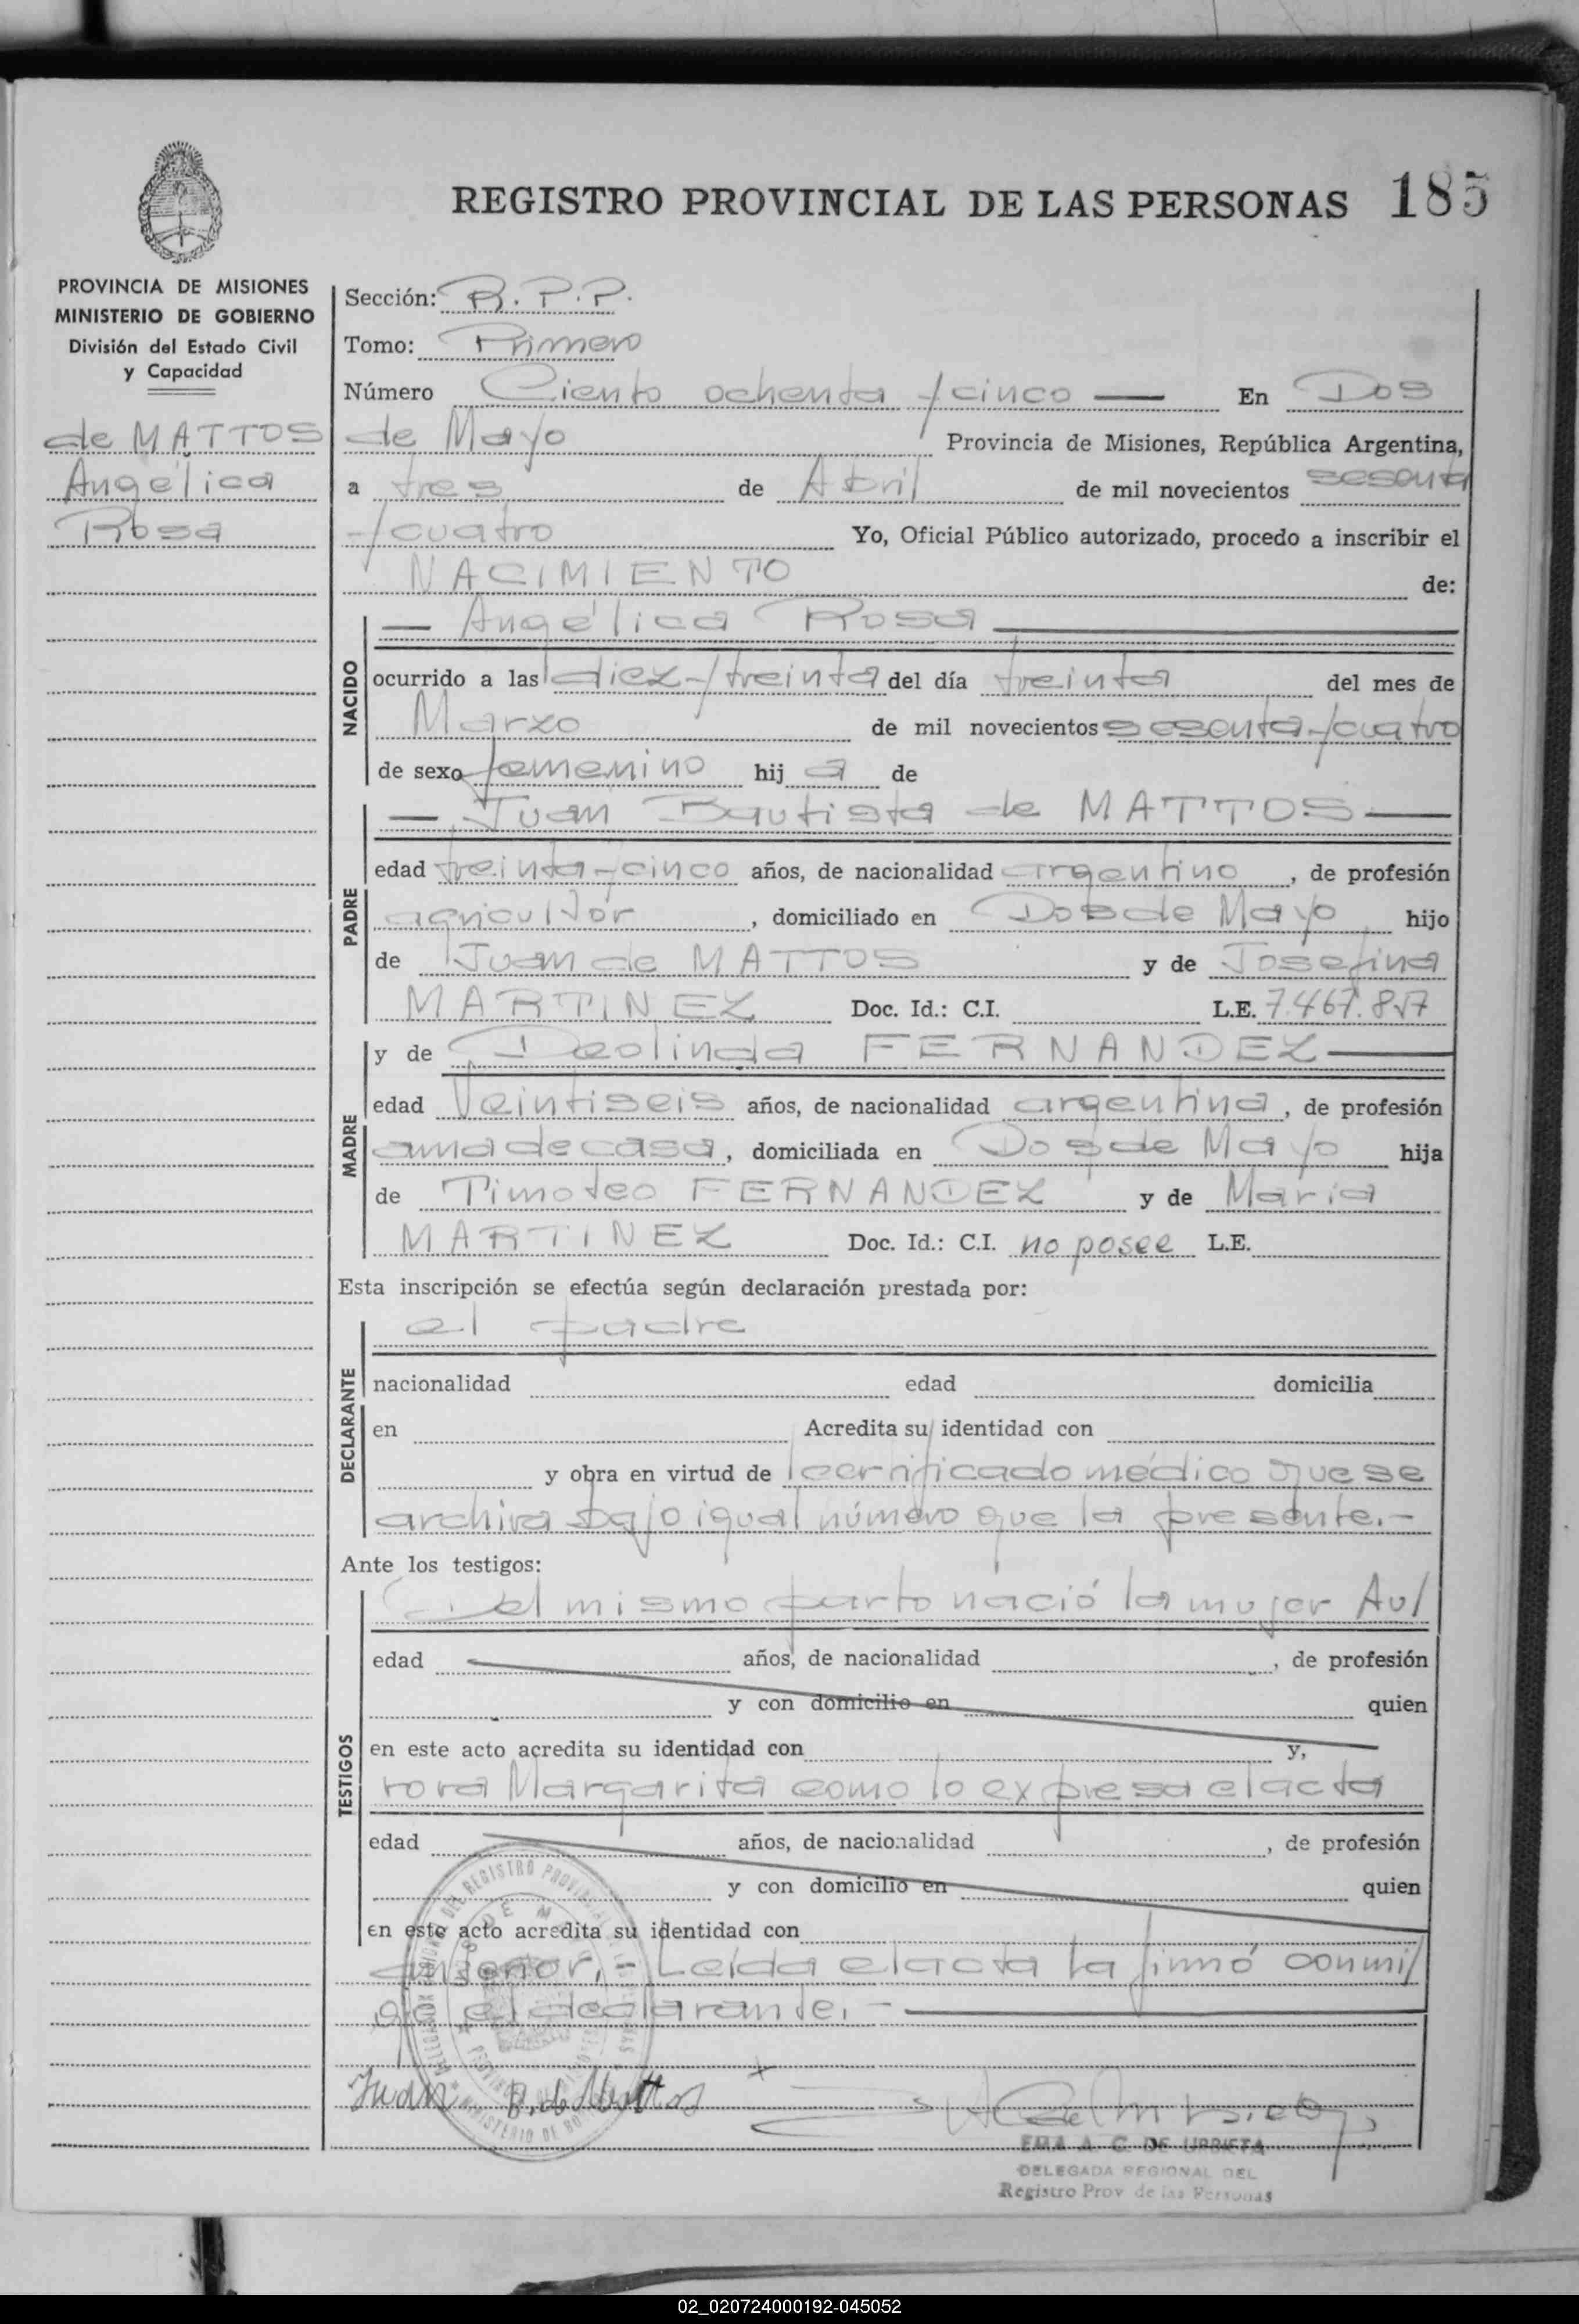 REGISTRO PROVINCIAL DE LAS PERSONAS 185
PROVINCIA DE MISIONES
MINISTERIO DE GOBIERNO
División del Estado Civil
y Capacidad
de MATTOS
Angélica
Rosa
Sección: R. P. P.
Tomo: Primero
Número Ciento ochenta y cinco — En Dos
de Mayo Provincia de Misiones, República Argentina,
a tres de Abril de mil novecientos sesenta
y cuatro Yo, Oficial Público autorizado, procedo a inscribir el
NACIMIENTO de:
NACIDO
— Angélica Rosa —
ocurrido a las diez y treinta del día treinta del mes de
Marzo de mil novecientos sesenta y cuatro
de sexo femenino hij a de
PADRE
— Juan Bautista de MATTOS —
edad treinta y cinco años, de nacionalidad argentino, de profesión
agricultor, domiciliado en Dos de Mayo hijo
de Juan de MATTOS y de Josefina
MARTINEZ Doc. Id.: C.I. L.E. 7.467.857
MADRE
y de Deolinda FERNANDEZ —
edad Veintiseis años, de nacionalidad argentina, de profesión
ama de casa, domiciliada en Dos de Mayo hija
de Timoteo FERNANDEZ y de Maria
MARTINEZ Doc. Id.: C.I. no posee L.E.
Esta inscripción se efectúa según declaración prestada por:
DECLARANTE
el padre
nacionalidad edad domicilia
en Acredita su identidad con
y obra en virtud de certificado médico que se
archiva bajo igual número que la presente.-
Ante los testigos:
TESTIGOS
Del mismo parto nació la mujer Au/
edad años, de nacionalidad , de profesión
y con domicilio en quien
en este acto acredita su identidad con y,
rora Margarita como lo expresa el acta
edad años, de nacionalidad , de profesión
y con domicilio en quien
en este acto acredita su identidad con
anterior.- Leída el acta la firmó conmi/
go el declarante.- —
Juan B. de Mattos
EMA A. C. DE URBIETA
DELEGADA REGIONAL DEL
Registro Prov de las Personas
02_020724000192-045052